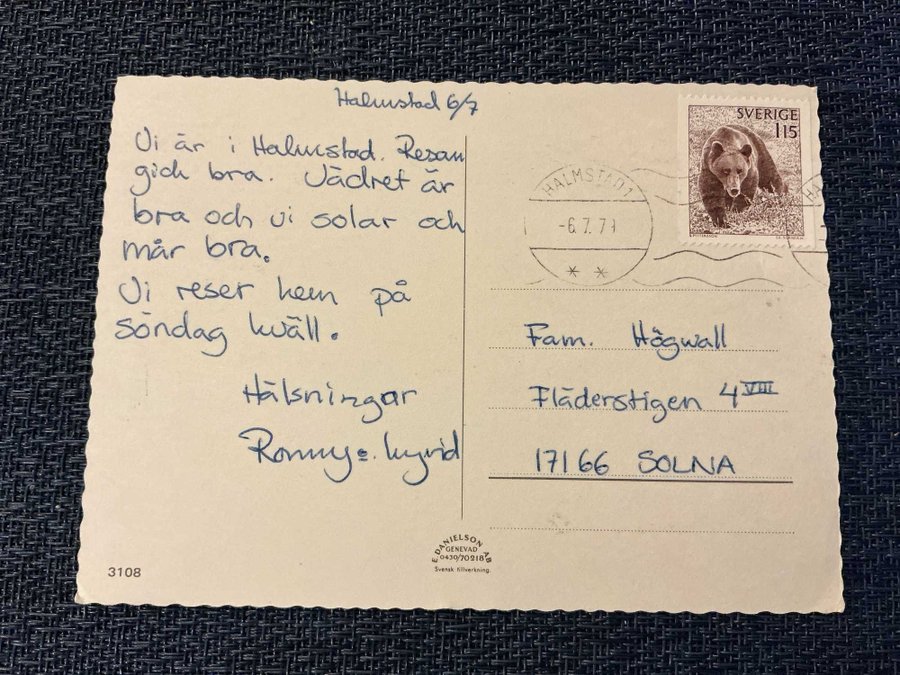 Halmstad 6/7
Vi är i Halmstad. Resan
gick bra. Vädret är
bra och vi solar och
mår bra.
Vi reser hem på
söndag kväll.
Hälsningar
Ronny o. Ingrid
SVERIGE
115
HALMSTAD 1
-6.7.7
Fam. Högwall
Fläderstigen 4 VIII
17166 SOLNA
E. DANIELSON AB
GENEVAD
0430/70218
Svensk tillverkning.
3108